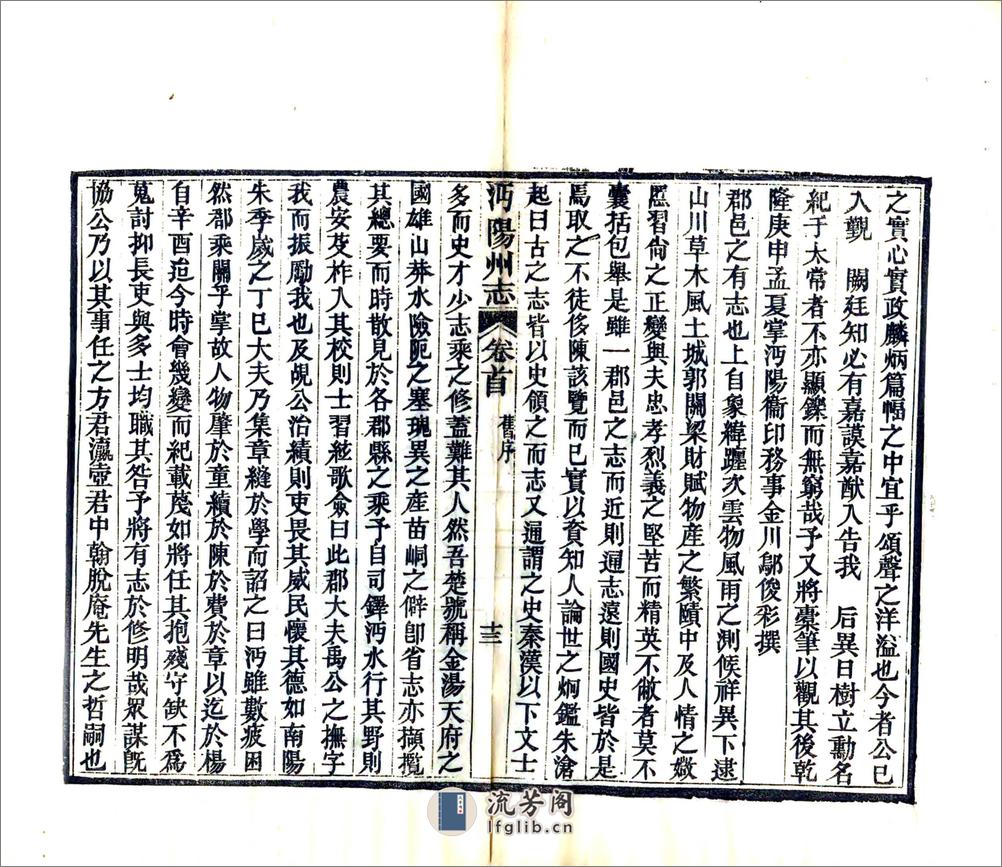 之實心實政麟炳篇幅之中宜乎頌聲之洋溢也今者公已
入觀　闕廷知必有嘉謨嘉猷入告我　后異日樹立勳名
紀于太常者不亦顯鑠而無窮哉予又將橐筆以觀其後乾
隆庚申孟夏掌沔陽衞印務事金川鄔俊彩撰
郡邑之有志也上自象緯躔次雲物風雨之測候祥異下逮
山川草木風土城郭關梁財賦物産之繁賾中及人情之媺
慝習尙之正變與夫忠孝烈義之堅苦而精英不敝者莫不
囊括包舉是雖一郡邑之志而近則通志遠則國史皆於是
焉取之不徒侈陳該覽而已實以資知人論世之炯鑑朱滄
起曰古之志皆以史領之而志又通謂之史秦漢以下文士
沔陽州志　卷首　舊序　十三
多而史才少志乘之修蓋難其人然吾楚號稱金湯天府之
國雄山莽水險阨之塞瑰異之產苗峒之僻卽省志亦擷攬
其總要而時散見於各郡縣之乘予自司鐸沔水行其野則
農安芟柞入其校則士習絃歌僉曰此郡大夫禹公之撫字
我而振勵我也及覘公治績則吏畏其威民懷其德如南陽
朱季歲之丁巳大夫乃集章縫於學而詔之曰沔雖數疲困
然郡乘關乎掌故人物肇於童續於陳於費於章以迄於楊
自辛酉迨今時會幾變而紀載蔑如將任其抱殘守缺不爲
蒐討抑長吏與多士均職其咎予將有志於修明哉眾謀旣
協公乃以其事任之方君瀛壺君中翰脫庵先生之哲嗣也
流芳阁
lfglib.cn